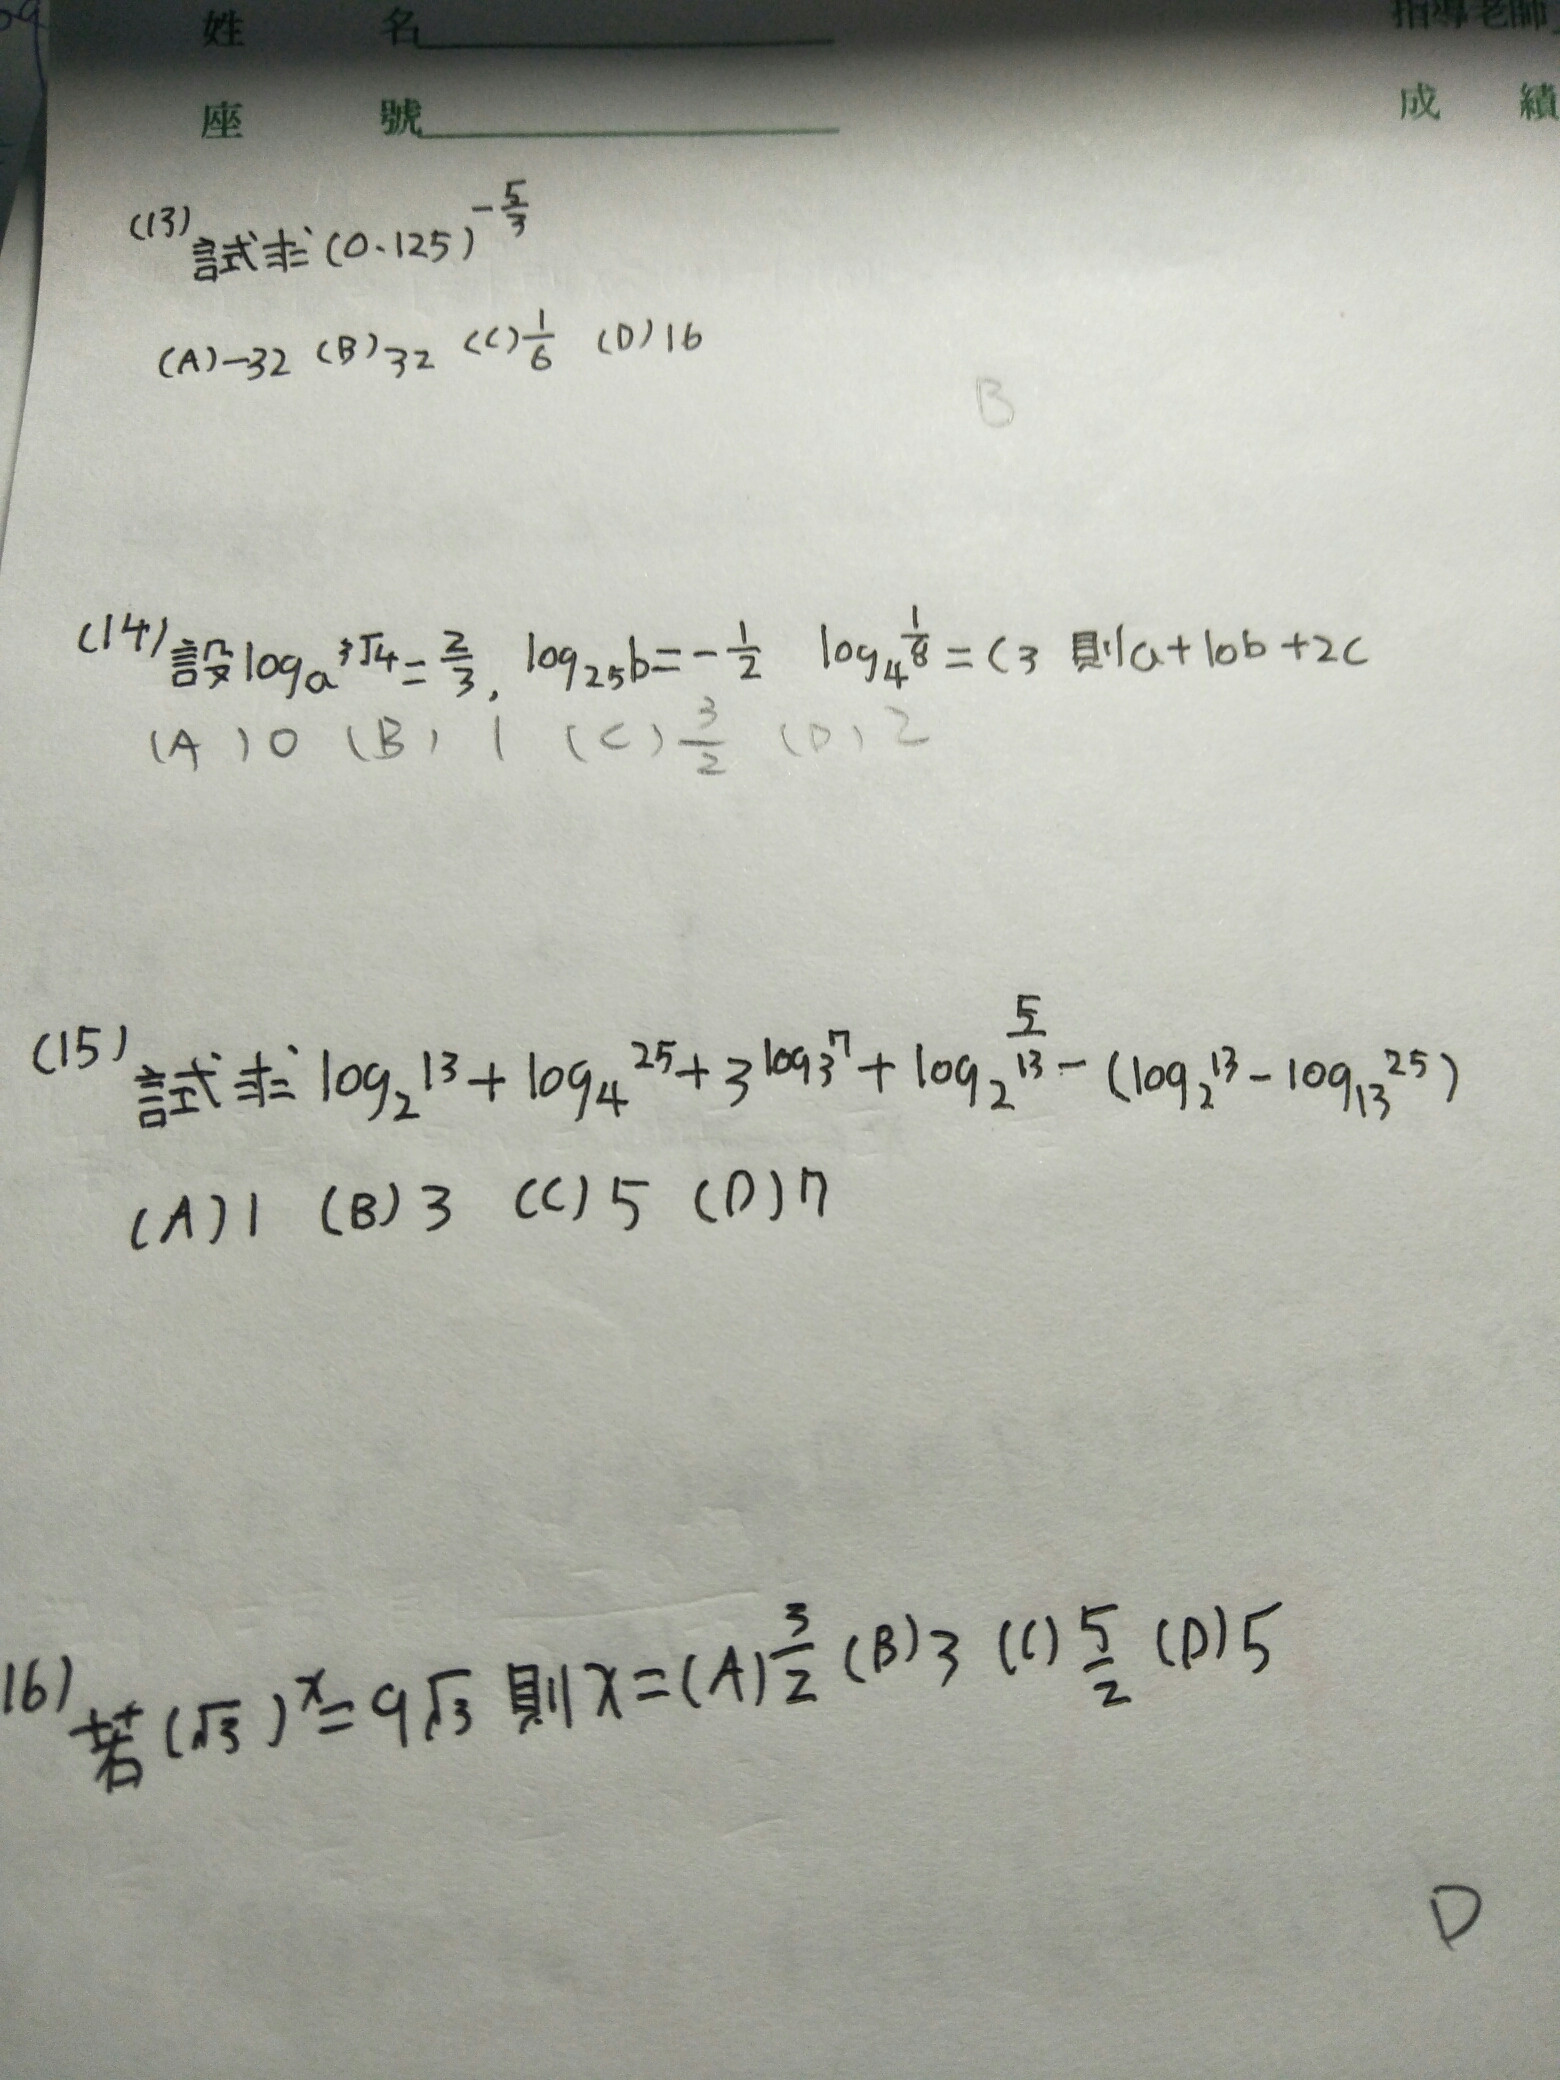 姓 名 指導老師
座 號 成 績
(13) 試求(0.125)^{-5/3}
(A)-32 (B)32 (C)1/6 (D)16
B
(14) 設log_a ∛4=2/3, log_25 b=-1/2 log_4 1/8=C3 則a+10b+2c
(A)0 (B)1 (C)3/2 (D)2
(15) 試求log_2 13+log_4 25+3^{log_3 7}+log_2 5/13-(log_2 13-log_13 25)
(A)1 (B)3 (C)5 (D)7
16) 若(√3)^x=9√3 則x=(A)3/2 (B)3 (C)5/2 (D)5
D